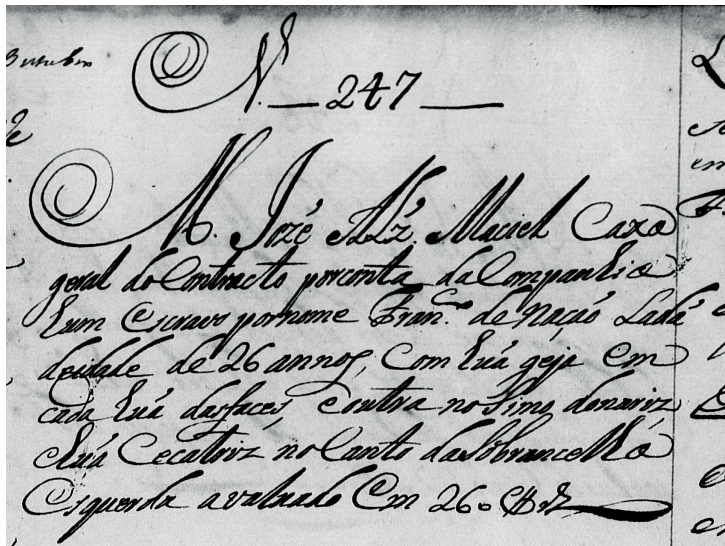 N. — 247 —
M. Jozé Alz. Maciel Caxa
geral do Contracto por conta da Companhia
hum Escravo por nome Fran.co de Nação Ladá
de idade de 26 annos, Com huá geja em
cada huá das faces, e outra no Simo do nariz
e huá Cecatriz no Canto da Sobrancelha
Esquerda avaluado Em 260